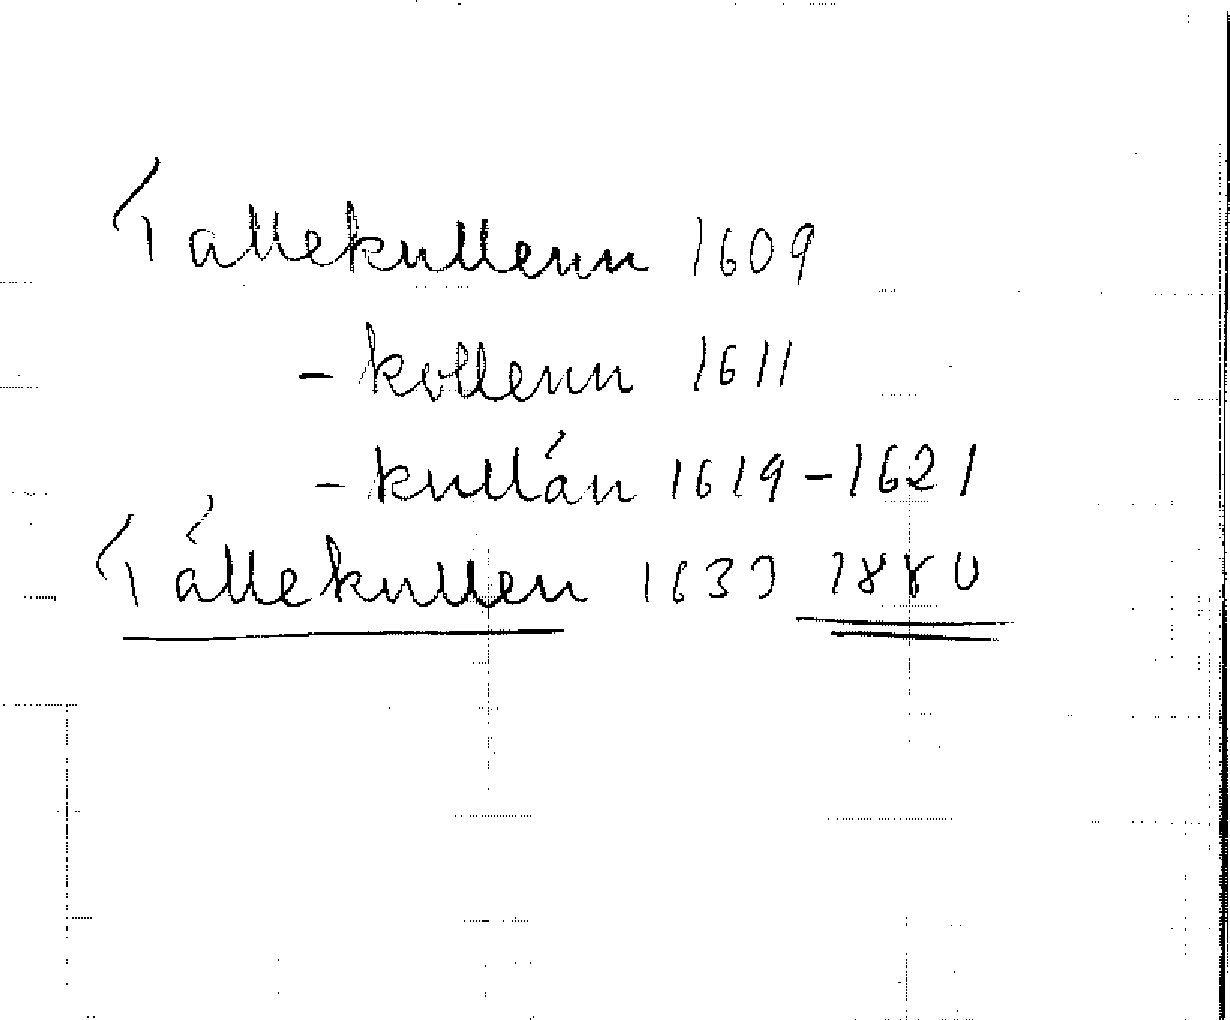 Tallekullenn 1609
- kollenn 1611
- kullán 1619-1621
Tállekullen 1633 1880